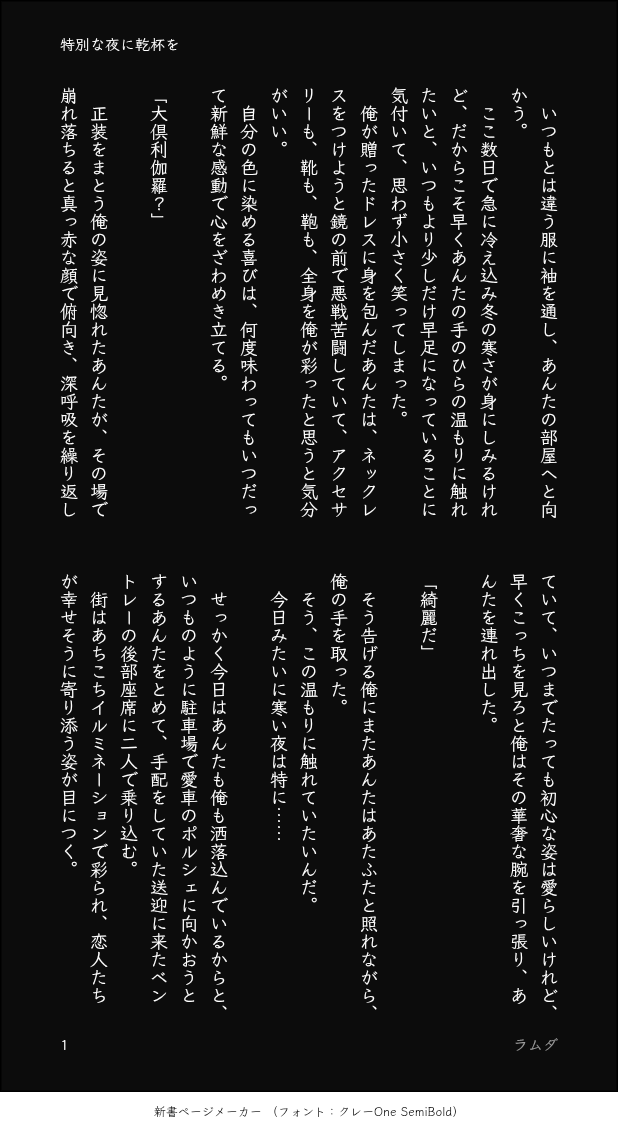 特別な夜に乾杯を
　いつもとは違う服に袖を通し、あんたの部屋へと向
かう。
　ここ数日で急に冷え込み冬の寒さが身にしみるけれ
ど、だからこそ早くあんたの手のひらの温もりに触れ
たいと、いつもより少しだけ早足になっていることに
気付いて、思わず小さく笑ってしまった。
　俺が贈ったドレスに身を包んだあんたは、ネックレ
スをつけようと鏡の前で悪戦苦闘していて、アクセサ
リーも、靴も、鞄も、全身を俺が彩ったと思うと気分
がいい。
　自分の色に染める喜びは、何度味わってもいつだっ
て新鮮な感動で心をざわめき立てる。
「大倶利伽羅？」
　正装をまとう俺の姿に見惚れたあんたが、その場で
崩れ落ちると真っ赤な顔で俯向き、深呼吸を繰り返し
ていて、いつまでたっても初心な姿は愛らしいけれど、
早くこっちを見ろと俺はその華奢な腕を引っ張り、あ
んたを連れ出した。
「綺麗だ」
　そう告げる俺にまたあんたはあたふたと照れながら、
俺の手を取った。
　そう、この温もりに触れていたいんだ。
　今日みたいに寒い夜は特に……
　せっかく今日はあんたも俺も洒落込んでいるからと、
いつものように駐車場で愛車のポルシェに向かおうと
するあんたをとめて、手配をしていた送迎に来たベン
トレーの後部座席に二人で乗り込む。
　街はあちこちイルミネーションで彩られ、恋人たち
が幸せそうに寄り添う姿が目につく。
1
ラムダ
新書ページメーカー （フォント：クレーOne SemiBold）